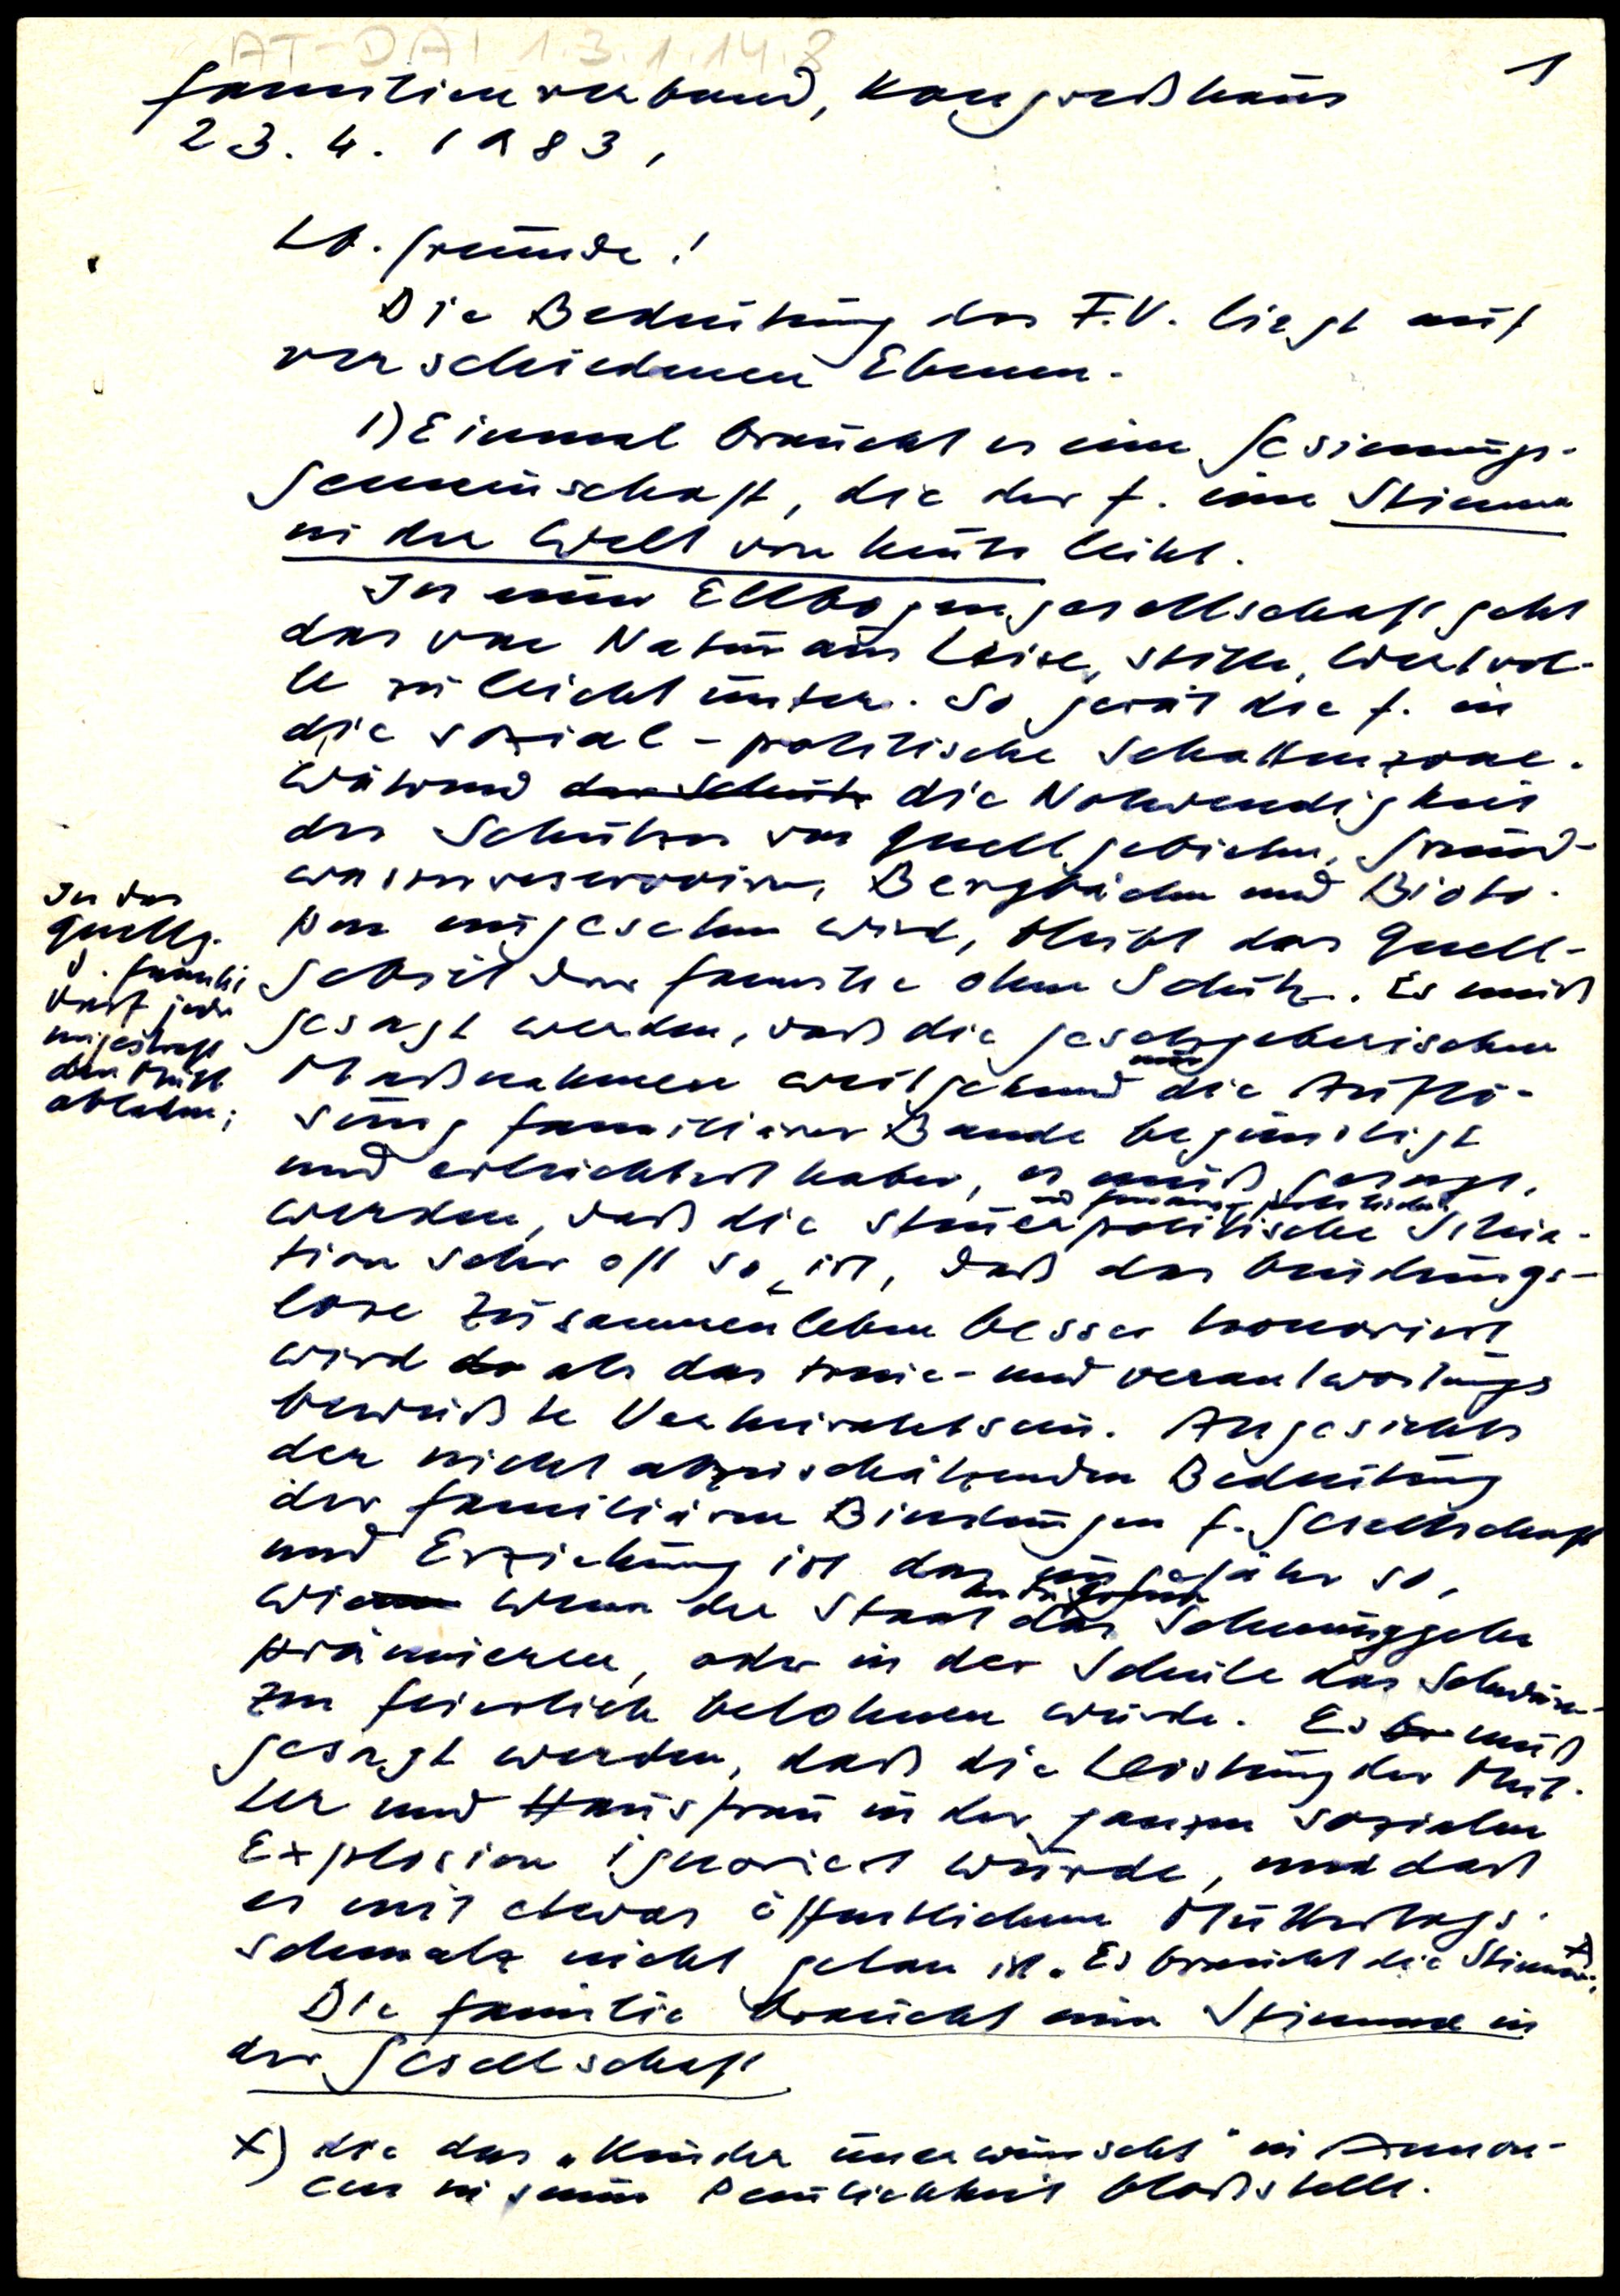 AT-DAI 1.3.1.14.8
1
Familienverband, Kongreßhaus
23.4.1983,
Lb. Freunde!
Die Bedeutung des F.V. liegt auf
verschiedenen Ebenen.
1) Einmal braucht es eine Gesinnungs-
gemeinschaft, die der F. eine Stimme
in der Welt von heute leiht.
In einer Ellbogengesellschaft geht
das von Natur aus Leise, Stille, Wertvol-
le zu leicht unter. So gerät die F. in
die sozial-politische Schattenzone.
Während der Schutz die Notwendigkeit
des Schutzes von Quellgebieten, Grund-
wasserreservoiren, Bergbächen und Bioto-
pen eingesehen wird, bleibt das Quell-
gebiet der Familie ohne Schutz. Es muß
In das
Quellg.
d. Familie
darf jeder
ungestraft
den Müll
abladen;
gesagt werden, daß die gesetzgeberischen
Maßnahmen weitgehend nur die Auflö-
sung familiärer Bande begünstigt
und erleichtert haben, es muß gesagt
werden, daß die steuerpolitische Situa-
und finanzpolitische
tion sehr oft so ist, daß das bindungs-
lose Zusammenleben besser honoriert
wird da als das treue- und verantwortungs
bewußte Verheiratetsein. Angesichts
der nicht abzuschätzenden Bedeutung
der familiären Bindungen f. Gesellschaft
und Erziehung ist das ungefähr so,
wie wenn der Staat das Schwunggeln
prämieren, oder in der Schule das Schwän-
zen feierlich belohnen würde. Es muß
gesagt werden, daß die Leistung der Mut-
ter und Hausfrau in der ganzen sozialen
Explosion ignoriert wurde, und daß
es mit etwas öffentlichem Muttertags-
schmalz nicht getan ist. Es braucht die Stimme x)
Die Familie braucht eine Stimme in
der Gesellschaft
x) die das "Kinder unerwünscht" in Annon-
cen in seiner Peinlichkeit bloßstellt.